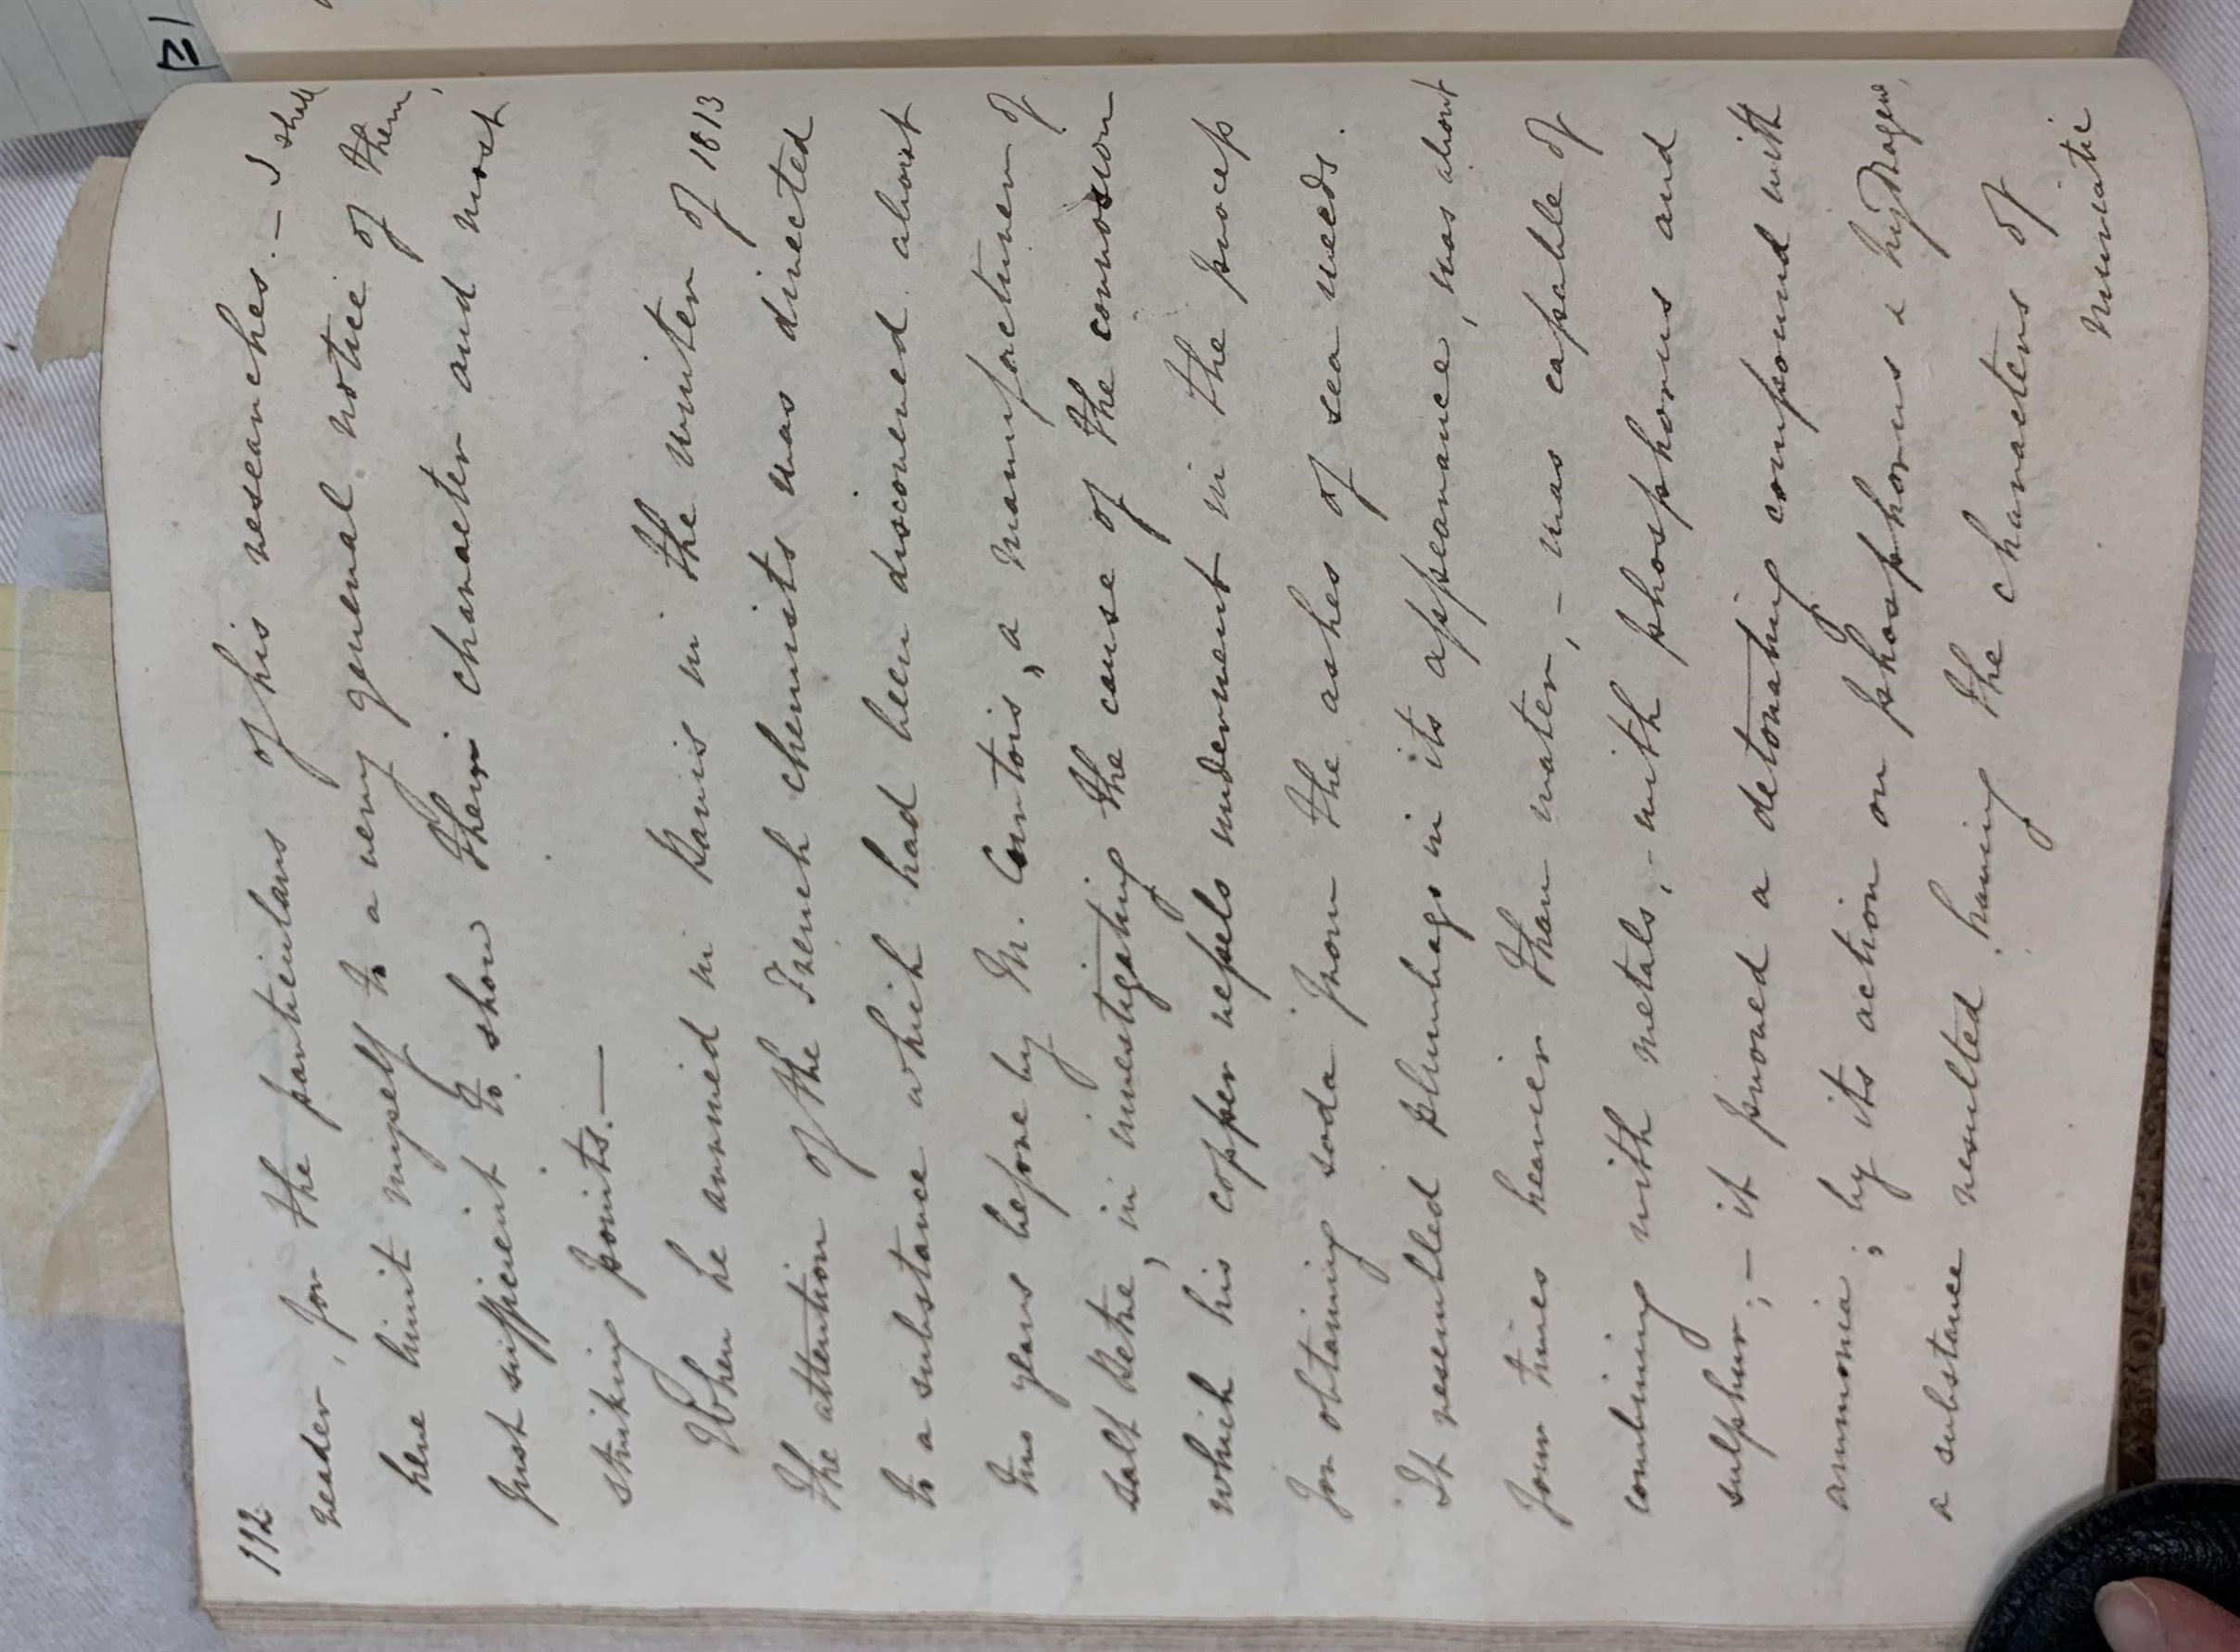 112
reader, for the particulars of his researches. – I shall
here limit myself to a very general notice of them,
just sufficient to show their character and most
striking points. —
When he arrived in Paris in the winter of 1813
the attention of the French chemists was directed
to a substance which had been discovered about
two years before by M. Courtois, a manufacturer of
salt petre, in investigating the cause of the corrosion
which his copper vessels underwent in the process
for obtaining soda from the ashes of sea weeds.
It resembled plumbago in its appearance, was about
four times heavier than water, – was capable of
combining with metals, – with phosphorus and
sulphur; – it proved a detonating compound with
ammonia; by its action on phosphorus & hydrogen,
a substance resulted having the characters of
muriatic